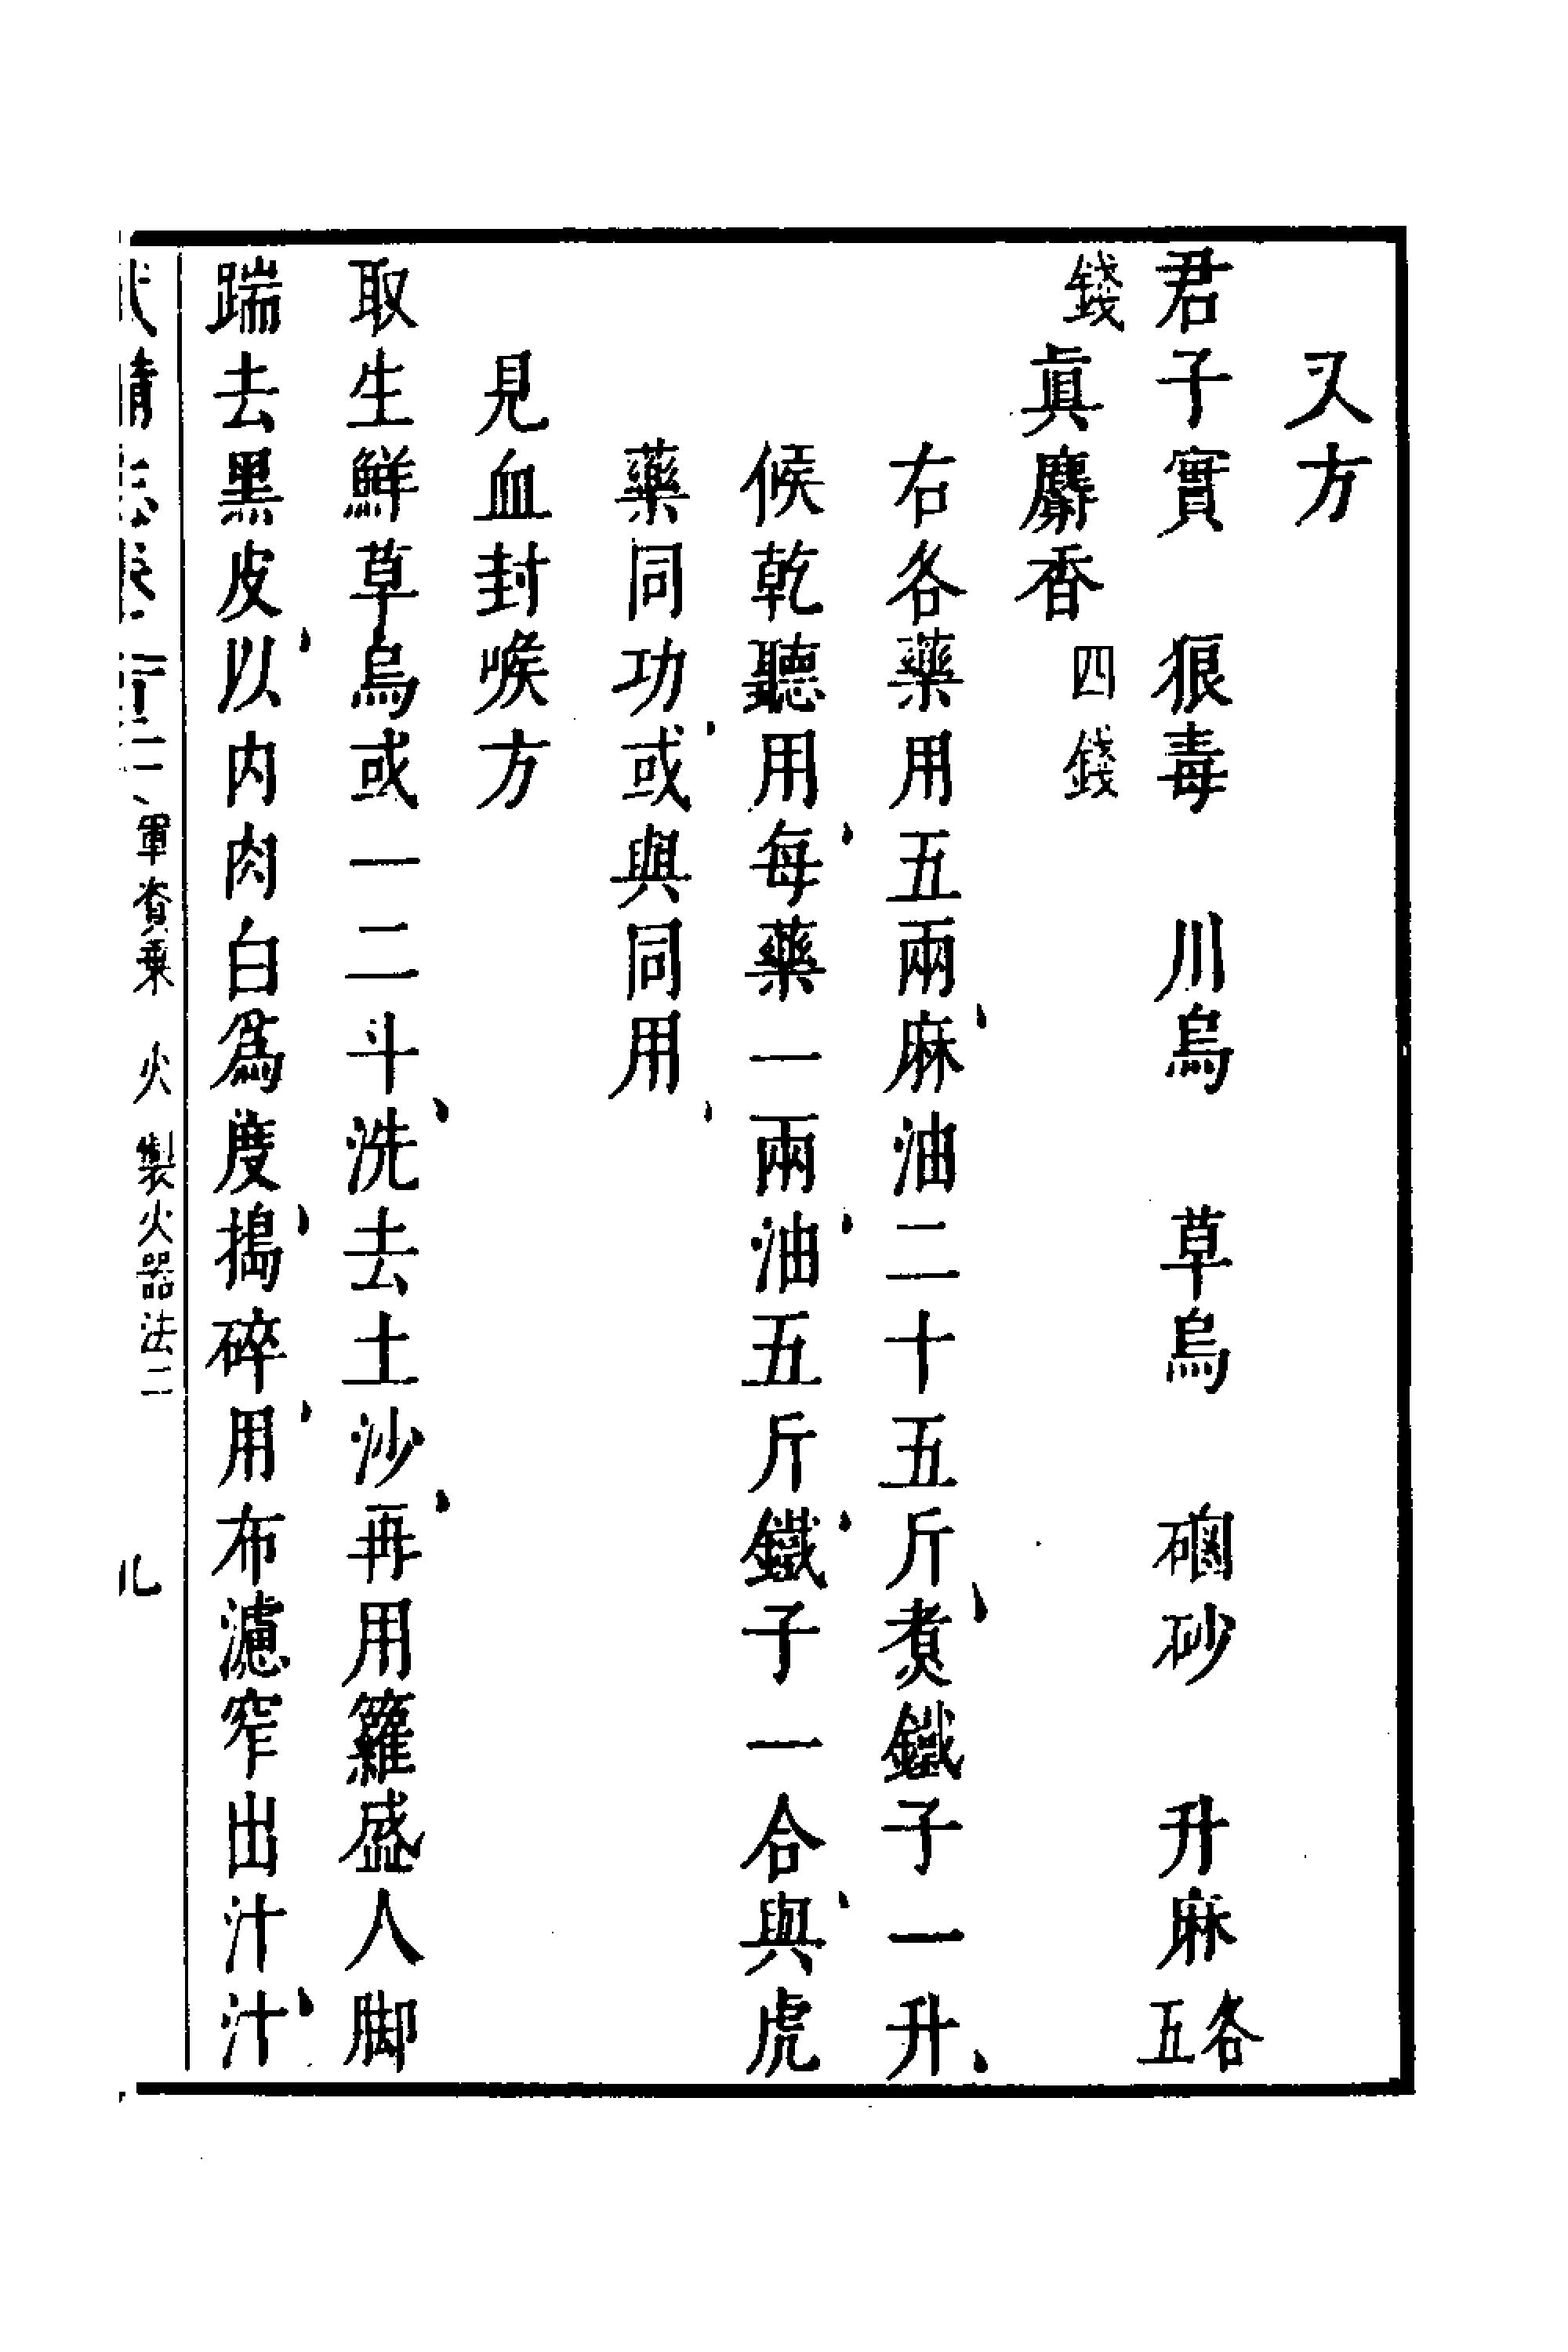 又方
君子實　狼毒　川烏　草烏　硇砂　升麻各五
錢眞麝香四錢
右各藥用五兩麻油二十五斤煮鐵子一升
候乾聽用每藥一兩油五斤鐵子一合與虎
藥同功或與同用
見血封喉方
取生鮮草烏或一二斗洗去土沙再用籮盛人脚
踹去黑皮以内肉白爲度搗碎用布濾窄出汁汁
軍資乘　火　製火器法二